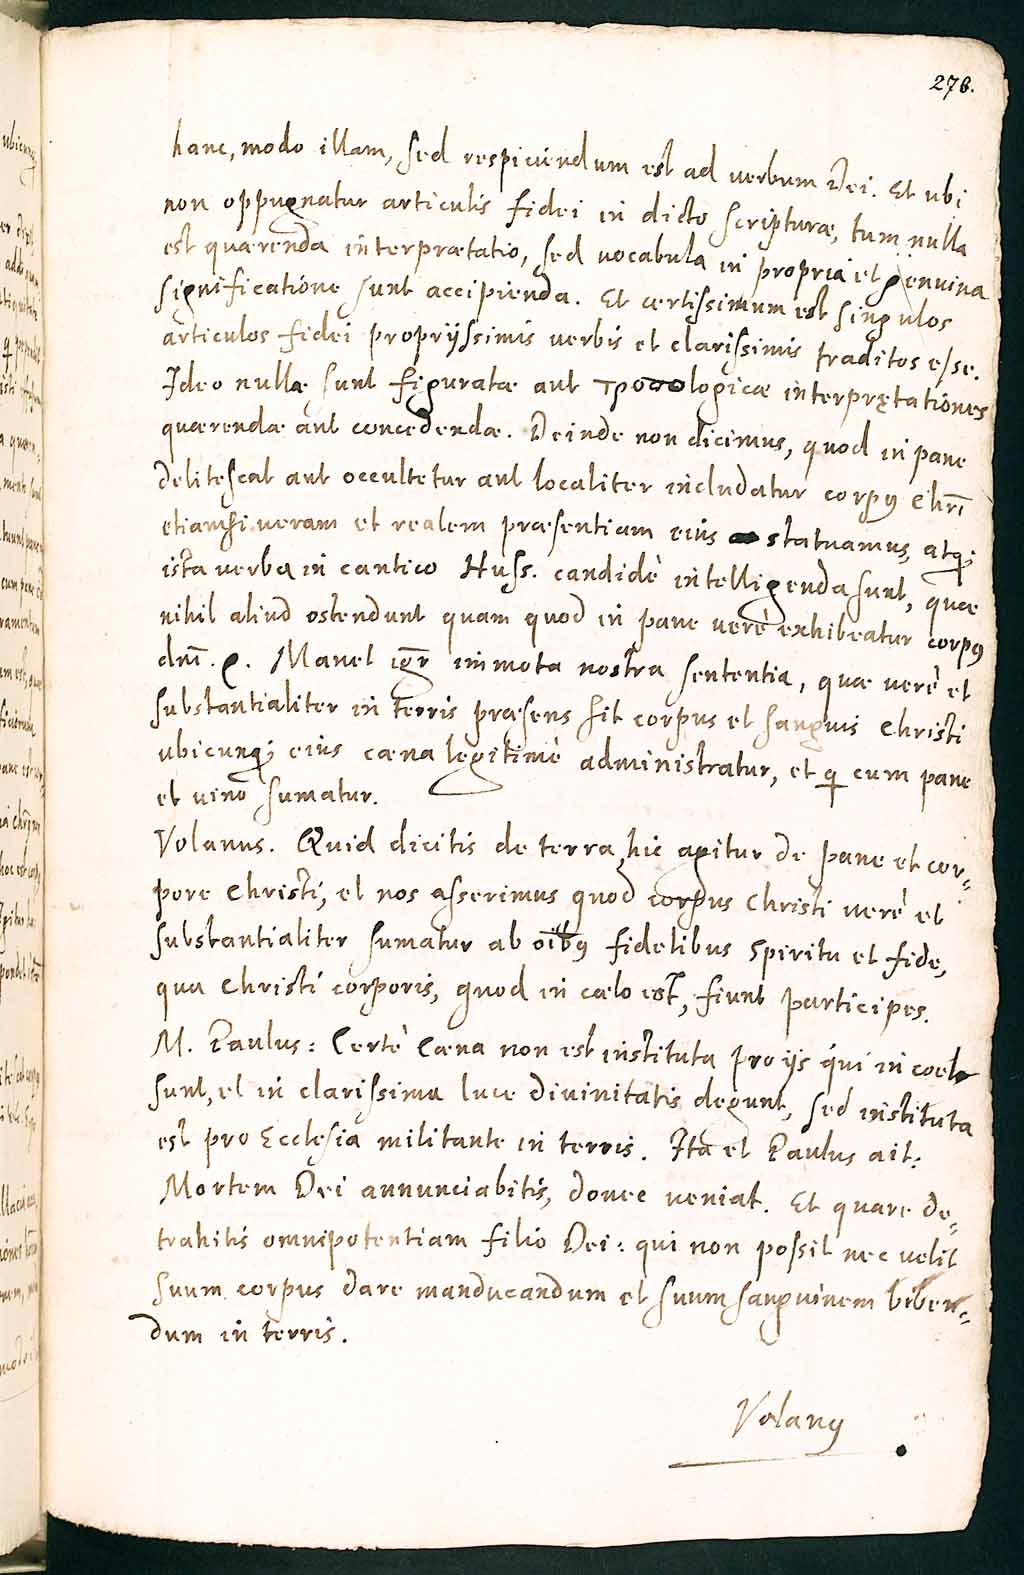 276.
hanc, modo illam, sed respiciendum est ad verbum Dei. Et ubi
non oppugnatur articulis fidei in dicto scripturæ, tum nulla
est quærenda interprætatio, sed vocabula in propria et genuina
significatione sunt accipienda. Et certissimum est singulos
articulos fidei proprijssimis verbis et clarissimis traditos esse.
Ideo nullæ sunt figuratæ aut τροπologicæ interprętationes
quærendæ aut concedendæ. Deinde non dicimus, quod in pane
delitescat aut occultetur aut localiter includatur corpꝰ Chrī
etiamsi veram et realem præsentiam eius statuamus, atqꝫ
ista verba in cantico Huss. candidè intelligenda sunt, quæ
nihil aliud ostendunt quam quod in pane verè exhibeatur corpꝰ
dnī. Manet igr̄ immota nostra sententia, quæ verè et
substantialiter in terris præsens sit corpus et sanguis Christi
ubicunqꝫ eius cæna legitimè administratur, et ꝙ cum pane
et vino sumatur.
Volanus. Quid dicitis de terra, hic agitur de pane et cor-
pore Christi, et nos asserimus quod corpus Christi verè et
substantialiter sumatur ab oībꝰ fidelibus spiritu et fide,
qua Christi corporis, quod in cælo est, fiunt participes.
M. Paulus: Certè Cæna non est instituta pro ijs qui in coelo
sunt, et in clarissima luce divinitatis degunt, sed instituta
est pro Ecclesia militante in terris. Ita et Paulus ait:
Mortem Dei annunciabitis, donec veniat. Et quare de-
trahitis omnipotentiam filio Dei: qui non possit nec velit
suum corpus dare manducandum et suum sanguinem biben-
dum in terris.
Volanꝰ